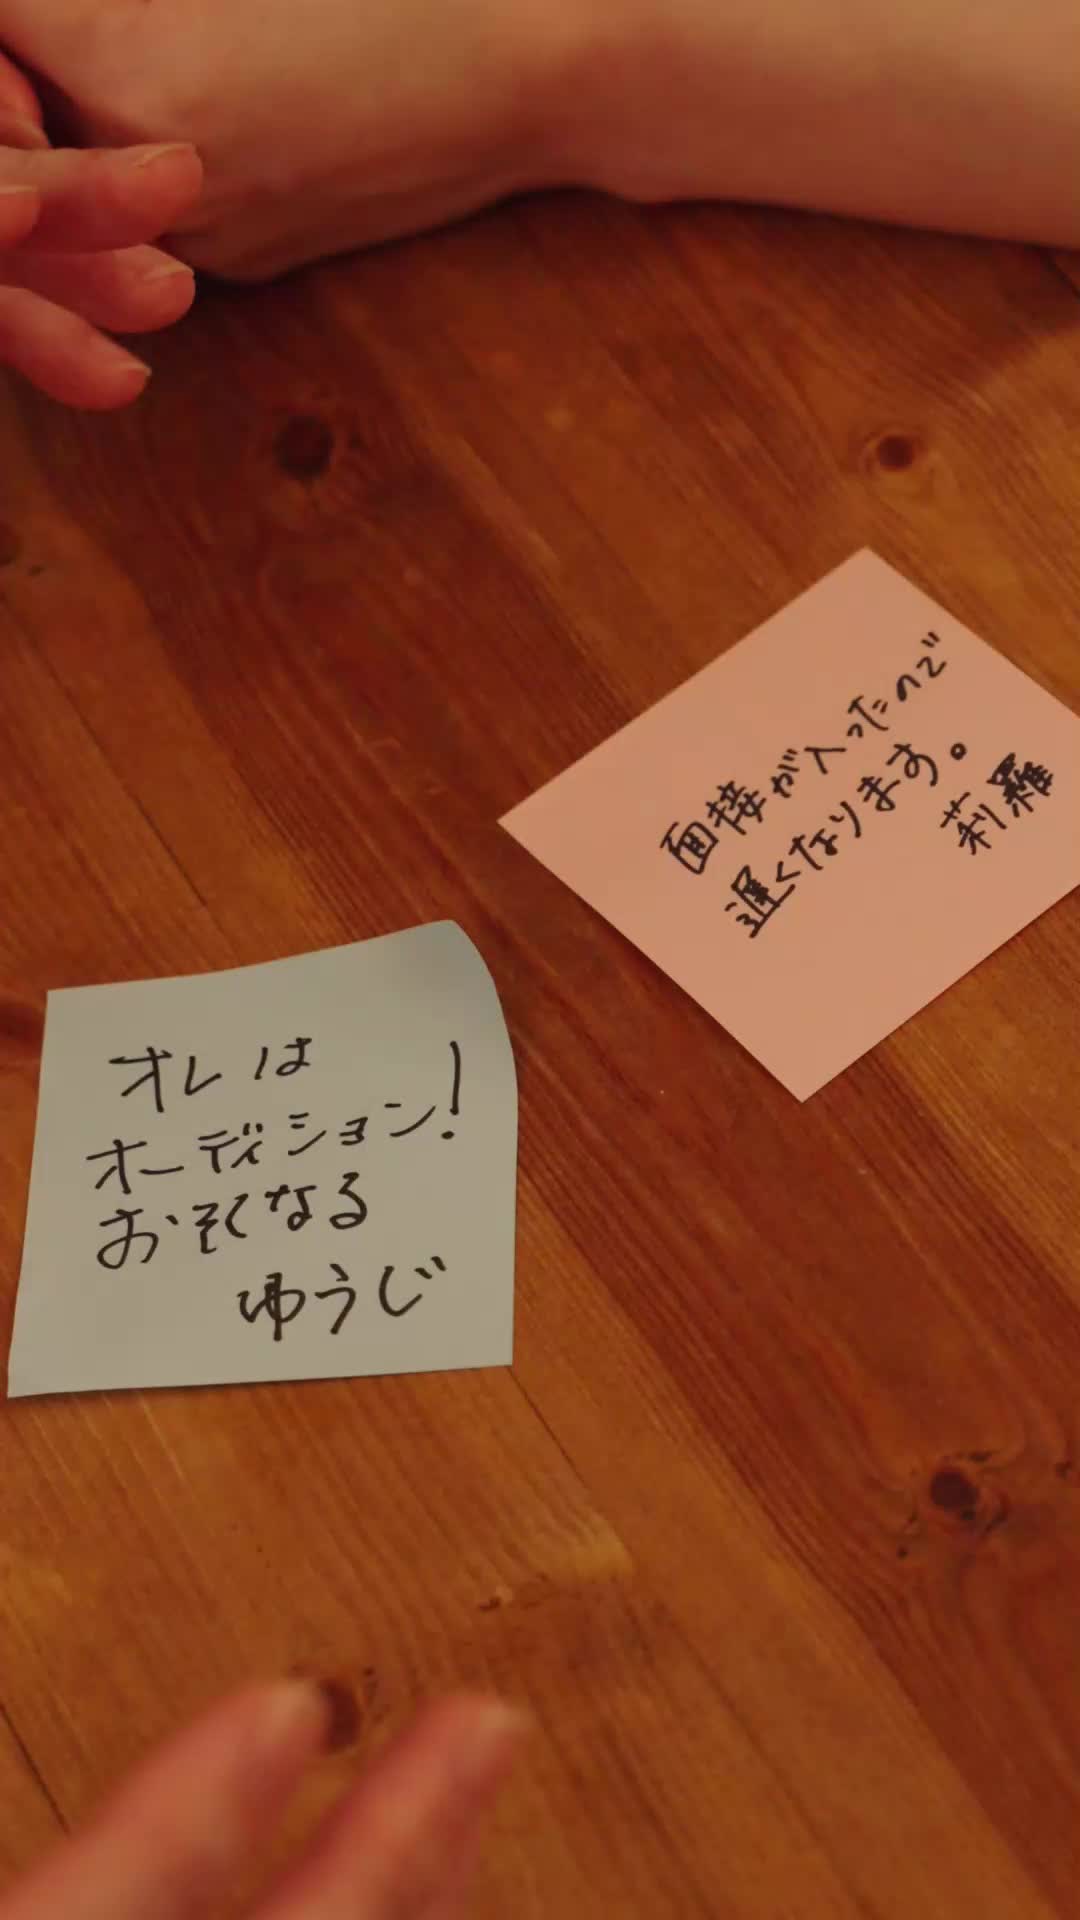 面接が入ったので
遅くなります。
莉羅
オレは
オーディション!
おそくなる
ゆうじ